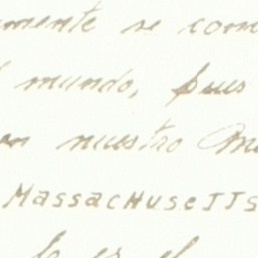 mente se com
mundo, pues
nuestro
Massachusetts
lo es el